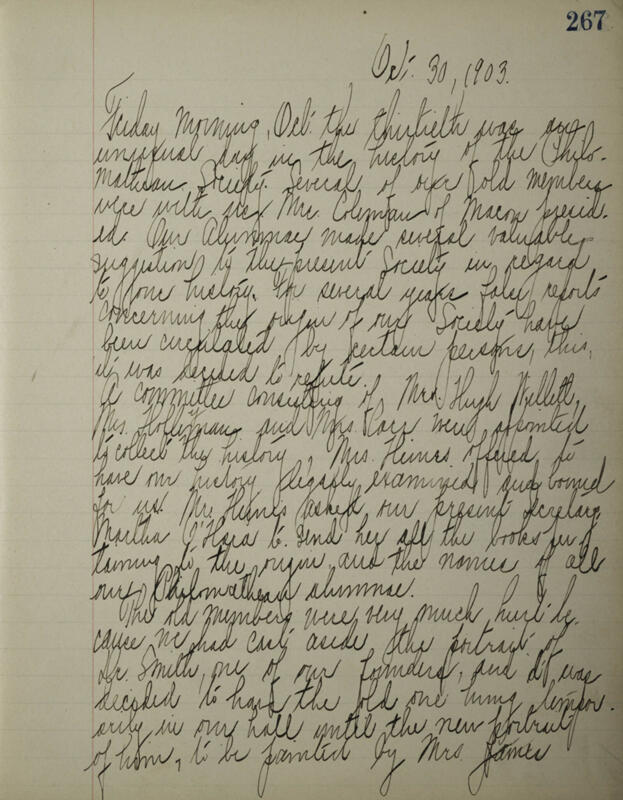 267
Oct. 30, 1903.
Friday Morning, Oct. the thirtieth was an
unusual day in the history of the Philo-
mathean Society. Several of our old members
were with us. Mrs. Coleman of Macon presid-
ed. Our Alumnae made several valuable
suggestion to the present Society in regard
to our history. For several years false reports
concerning the origin of our Society have
been circulated by certain persons, this,
it was decided to refute.
A committee consisting of Mrs. Hugh Willett,
Mrs. and Mrs. were appointed
to collect the history, Mrs. Heines offered to
have our history legally examined and bound
for us. Mrs. Heines asked our present secretary
Martha O'Hara to send her all the books per
taining to the origin and the names of all
our Philomathean alumnae.
The old members were very much hurt be-
cause we had cast aside the portrait of
Dr. Smith, one of our founders, and it was
decided to have the old one hung tempor-
arily in our hall until the new portrait
of him, to be painted by Mrs. James